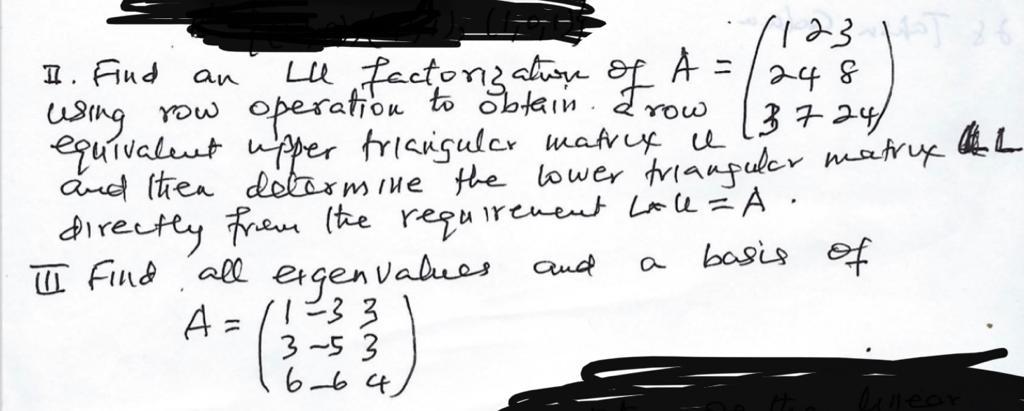 II. Find an LU factorization of A = (1 2 3
2 4 8
3 7 24)
using row operation to obtain a row
equivalent upper triangular matrix U
and then determine the lower triangular matrix L
directly from the requirement L U = A .
III Find all eigenvalues and a basis of
A = (1 -3 3
3 -5 3
6 -6 4)